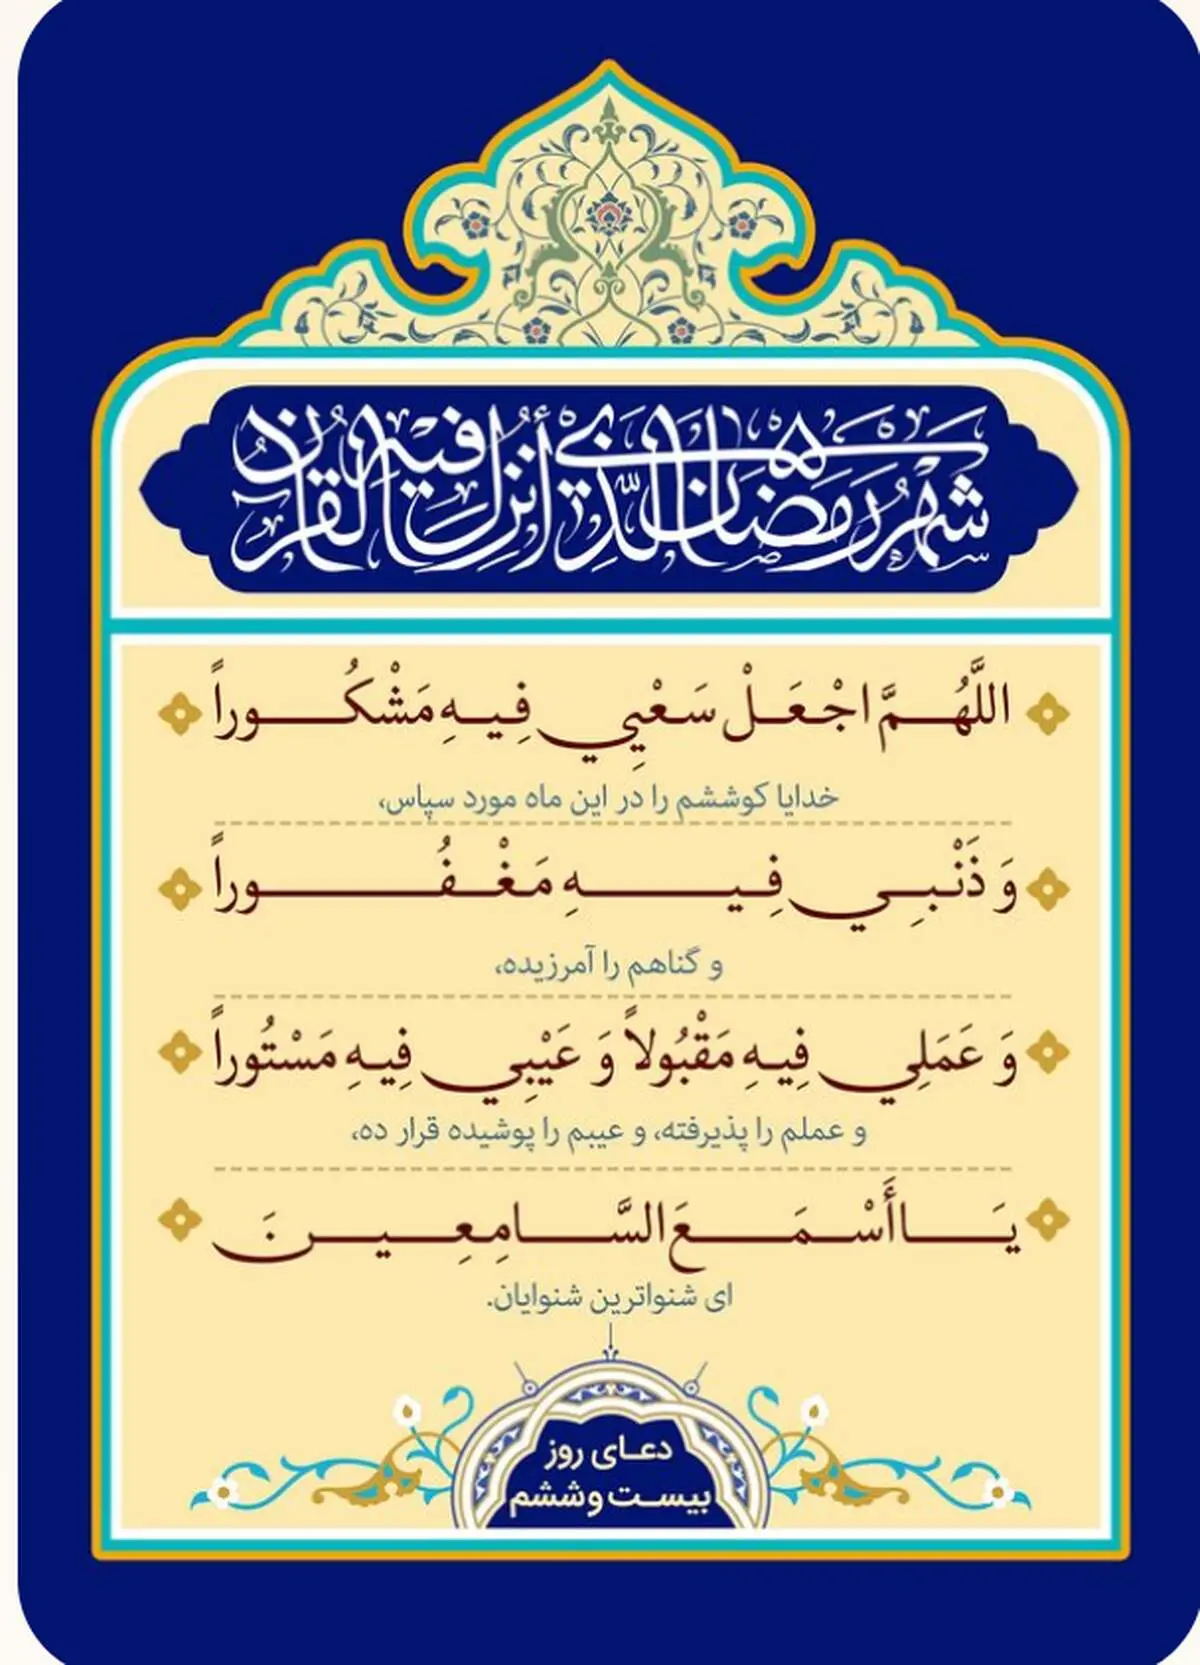 شَهْرُ رَمَضَانَ الَّذِي أُنْزِلَ فِيهِ الْقُرْآنُ
اللَّهُمَّ اجْعَلْ سَعْيِي فِيهِ مَشْكُوراً
خدایا کوششم را در این ماه مورد سپاس،
وَ ذَنْبِي فِيهِ مَغْفُوراً
و گناهم را آمرزیده،
وَ عَمَلِي فِيهِ مَقْبُولاً وَ عَيْبِي فِيهِ مَسْتُوراً
و عملم را پذیرفته، و عیبم را پوشیده قرار ده،
يَا أَسْمَعَ السَّامِعِينَ
ای شنواترین شنوایان.
دعای روز
بیست و ششم